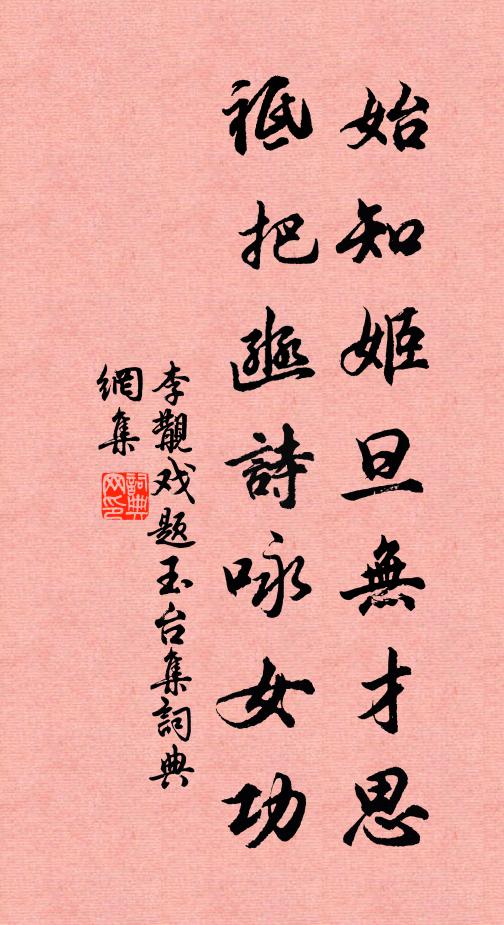 始知姬旦無才思
祗把豳詩咏女功
李覯戏题玉台集詞典
網集
詞典
网印